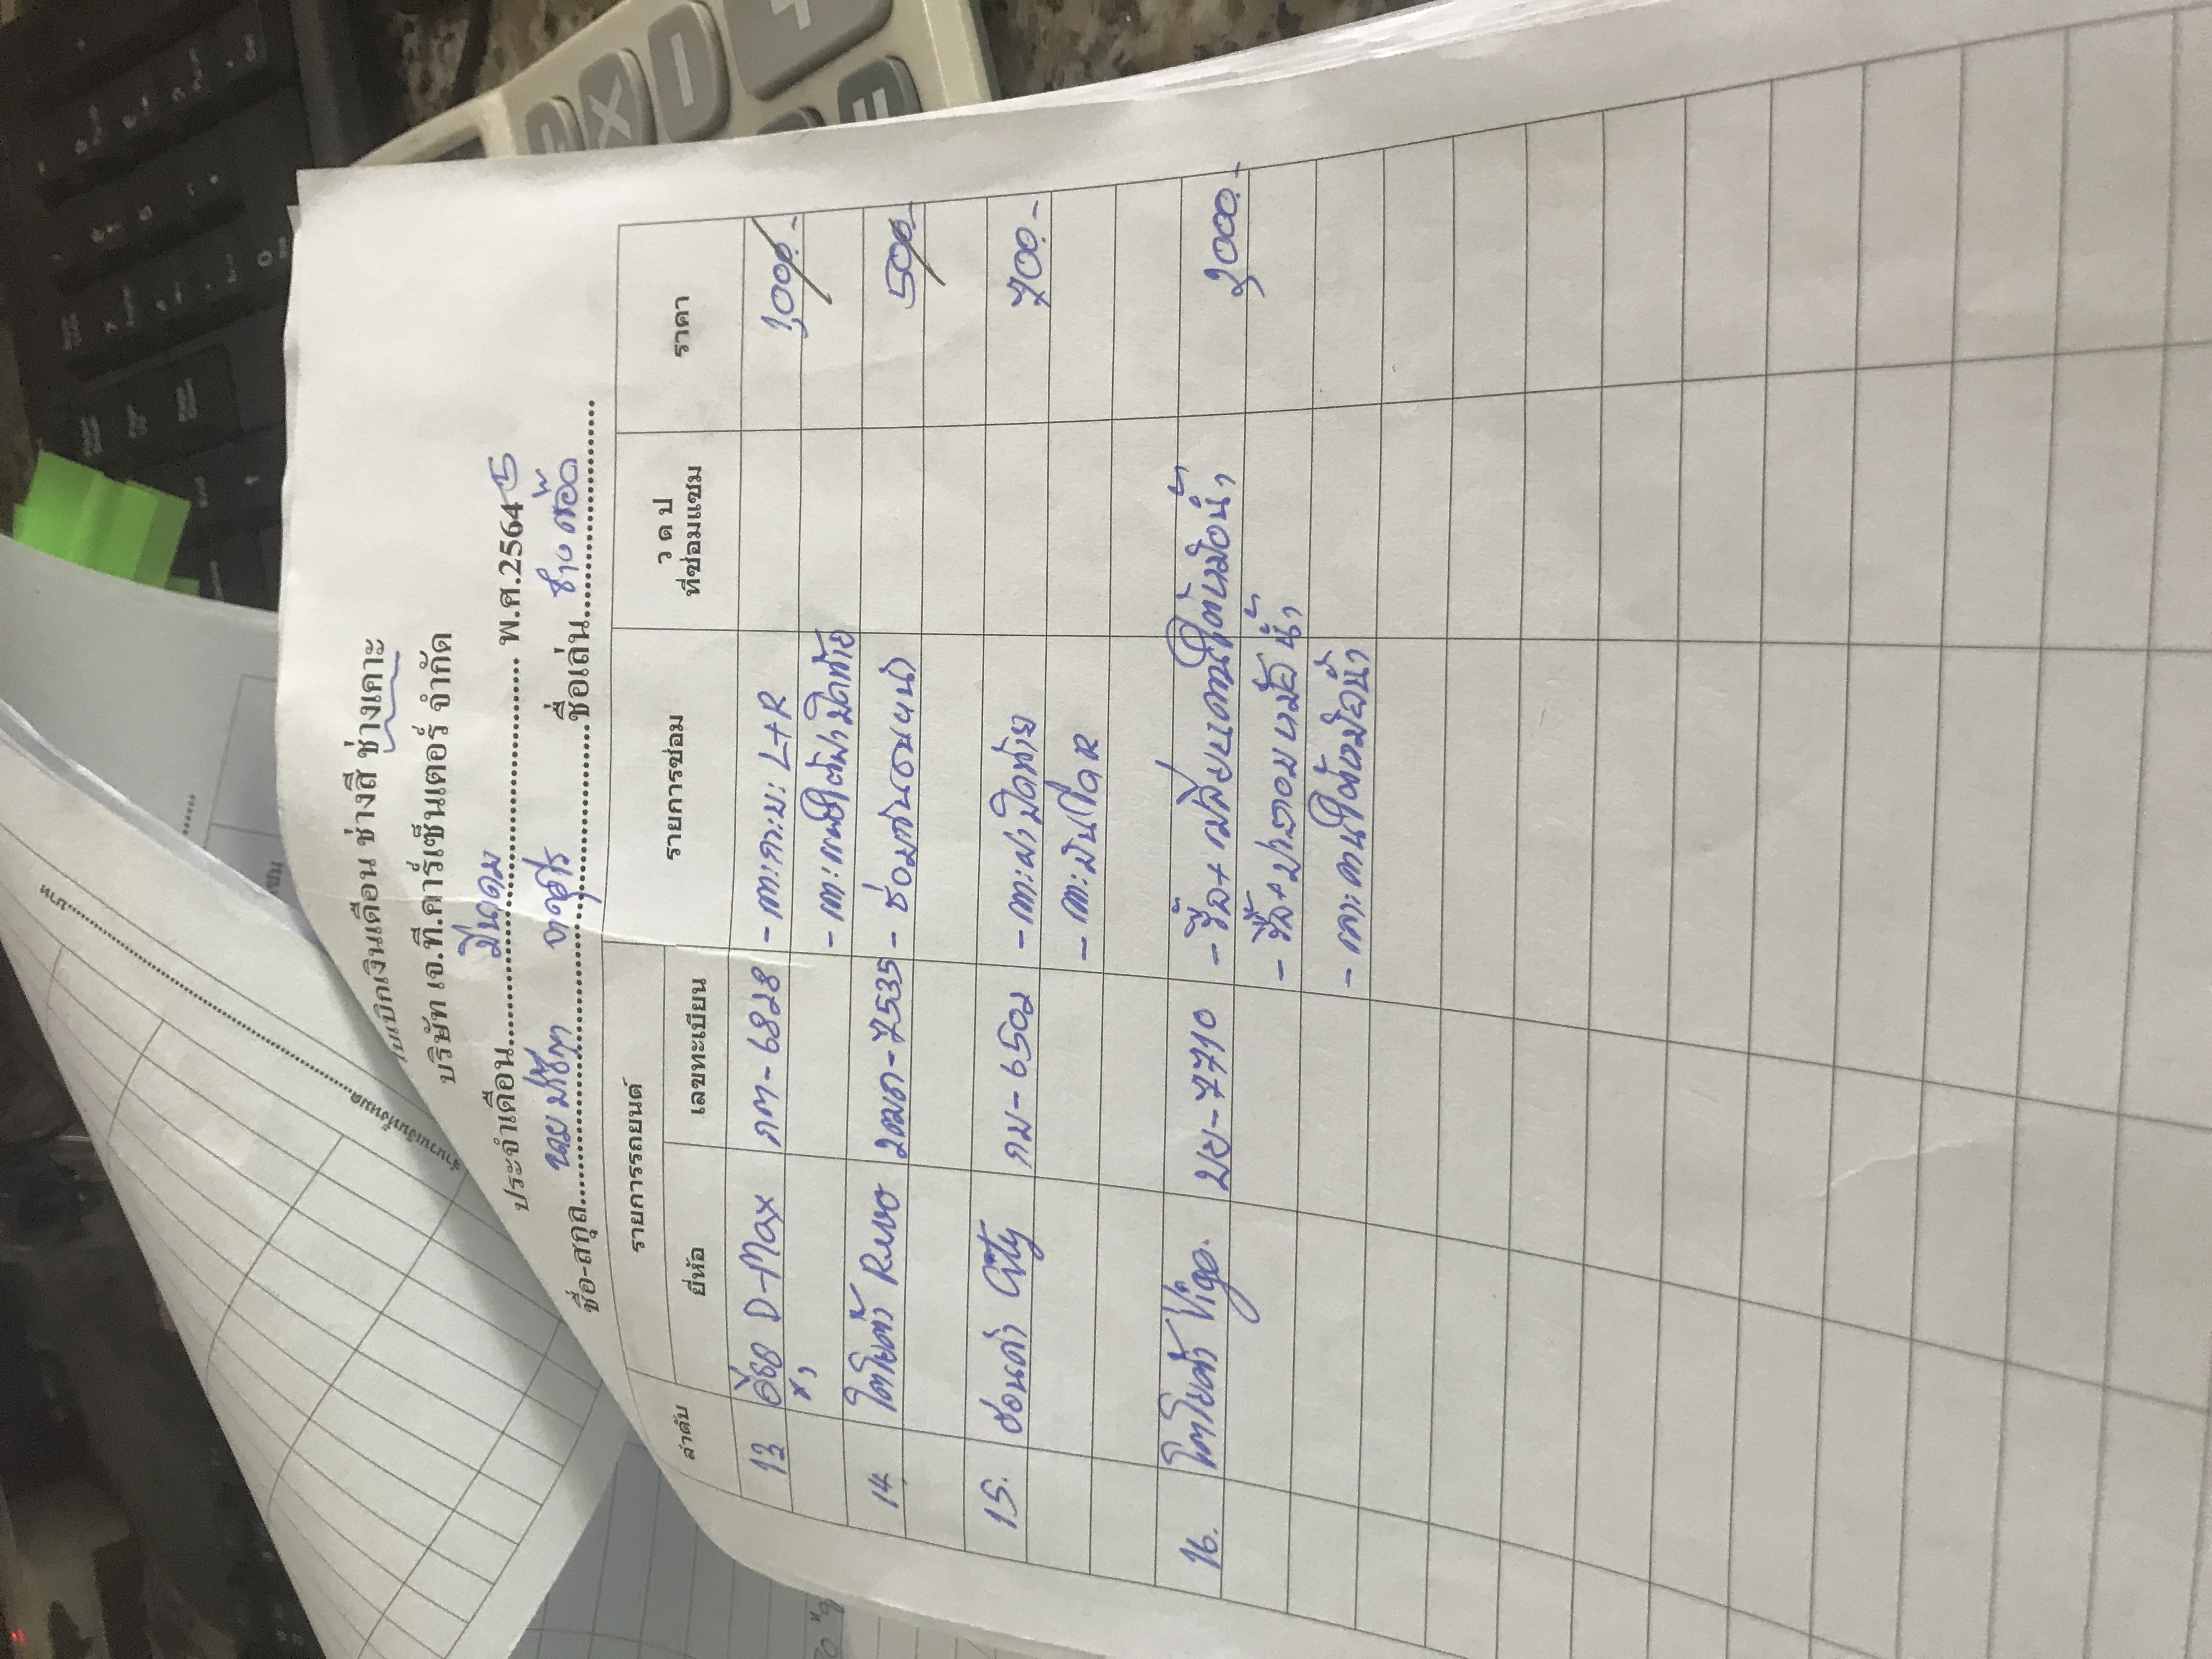 ใบเบิกเงินเดือน ช่างสี ช่างเคาะ
บริษัท เจ.ที.คาร์เซ็นเตอร์ จำกัด
ประจำเดือน มีนาคม พ.ศ.25645
ชื่อ-สกุล นาย ชื่อเล่น ช่าง
ลำดับ รายการรถยนต์ รายการซ่อม ว ด ป ที่ซ่อมแซม ราคา
ยี่ห้อ เลขทะเบียน
13 อีซูซุ D-Max กท-6828 - เคาะกะบะ L+R 1,000.-
- เคาะ
14 โตโยต้า Revo 2ฒก-7535 - ซ่อมกันชนหน้า 500.-
15. ฮอนด้า City กม-6502 - เคาะฝาปิดท้าย 700.-
- เคาะบันได R
16. โตโยต้า Vigo. บย-7710 - รื้อ+เปลี่ยนคานใต้หม้อน้ำ 2000.-
- รื้อ+ปะกอบหม้อน้ำ
- เคาะคานใต้หม้อน้ำ
จำนวนเงินทั้งหมด บาท